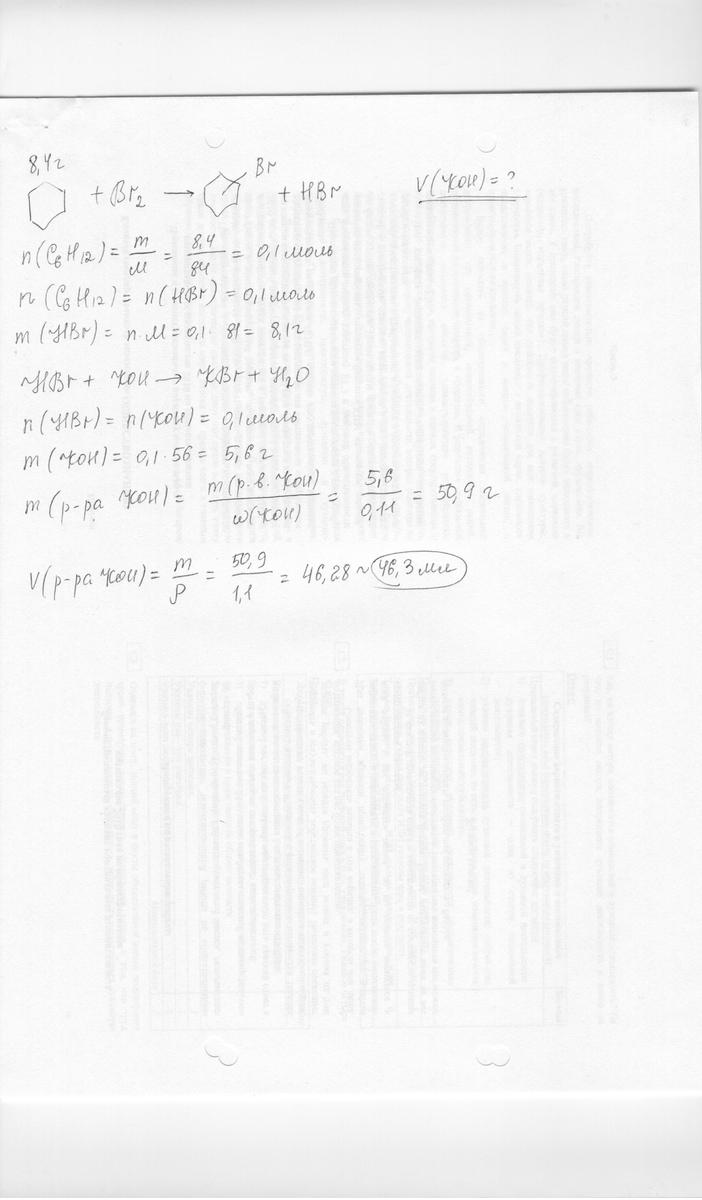 8,4 г
+ Br₂ → Br + HBr
V(KOH) = ?
n(C₆H₁₂) = m/M = 8,4/84 = 0,1 моль
n(C₆H₁₂) = n(HBr) = 0,1 моль
m(HBr) = n·M = 0,1 · 81 = 8,1 г
HBr + KOH → KBr + H₂O
n(HBr) = n(KOH) = 0,1 моль
m(KOH) = 0,1 · 56 = 5,6 г
m(р-ра KOH) = m(р.в. KOH)/ω(KOH) = 5,6/0,11 = 50,9 г
V(р-ра KOH) = m/ρ = 50,9/1,1 = 46,28 ~ 46,3 мл